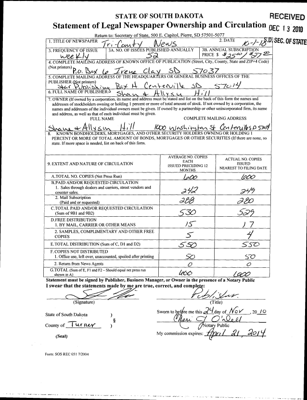 STATE OF SOUTH DAKOTA
Statement of Legal Newspaper Ownership and Circulation
RECEIVED
DEC 13 2010
S.D. SEC. OF STATE
Return to: Secretary of State, 500 E. Capitol, Pierre, SD 57501-5077
1. TITLE OF NEWSPAPER
Tri-County News
2. DATE
10-1-10
3. FREQUENCY OF ISSUE
weekly
3A. NO. OF ISSUES PUBLISHED ANNUALLY
52
3B. ANNUAL SUBSCRIPTION PRICE
4. COMPLETE MAILING ADDRESS OF KNOWN OFFICE OF PUBLICATION (Street, City, County, State and ZIP+4 Code) (Not printers)
P.O. Box 6 Irene Clay SD 57037
5. COMPLETE MAILING ADDRESS OF THE HEADQUARTERS OF GENERAL BUSINESS OFFICES OF THE PUBLISHER (Not printer)
Star Publishing Box H Centerville SD 57014
6. FULL NAME OF PUBLISHER
Shane & Allyson Hill
7. OWNER (If owned by a corporation, its name and address must be stated and also
FULL NAME
COMPLETE MAILING ADDRESS
Shane & Allyson Hill
1000 Washington St Centerville SD 57014
8. KNOWN BONDHOLDERS, MORTGAGES, AND OTHER SECURITY HOLDERS OWNING OR HOLDING 1 PERCENT OR MORE OF TOTAL AMOUNT OF BONDS, MORTGAGES OR OTHER SECURITIES (If there are none, so state. If more space is needed, list on back of this form.
9. EXTENT AND NATURE OF CIRCULATION
AVERAGE NO. COPIES EACH ISSUED PRECEDING 12 MONTHS
ACTUAL NO. COPIES ISSUED NEAREST TO FILING DATE
A. TOTAL NO. COPIES (Net Press Run)
600
600
B. PAID AND/OR REQUESTED CIRCULATION
1. Sales through dealers and carriers, street vendors and counter sales.
242
249
2. Mail Subscription (Paid and/or requested)
288
280
C. TOTAL PAID AND/OR REQUESTED CIRCULATION (Sum of 9B1 and 9B2)
530
529
D. FREE DISTRIBUTION
1. BY MAIL, CARRIER OR OTHER MEANS
15
17
2. SAMPLES, COMPLIMENTARY AND OTHER FREE COPIES
5
4
E. TOTAL DISTRIBUTION (Sum of C, D1 and D2)
550
550
F. COPIES NOT DISTRIBUTED
1. Office use, left over, unaccounted, spoiled after printing
50
50
2. Return from News Agents
0
0
G. TOTAL (Sum of E, F1 and F2 - Should equal net press run shown in A)
600
600
Statement must be signed by Publisher, Business Manager, or Owner in the presence of a Notary Public
I swear that the statements made by me are true, correct, and complete:
(Signature)
Publisher
(Title)
State of South Dakota )
County of Turner )
Sworn to before me this 24 day of Nov, 2010
Notary Public
(Seal)
My commission expires: April 21, 2014
Form: SOS REC 051 7/2004